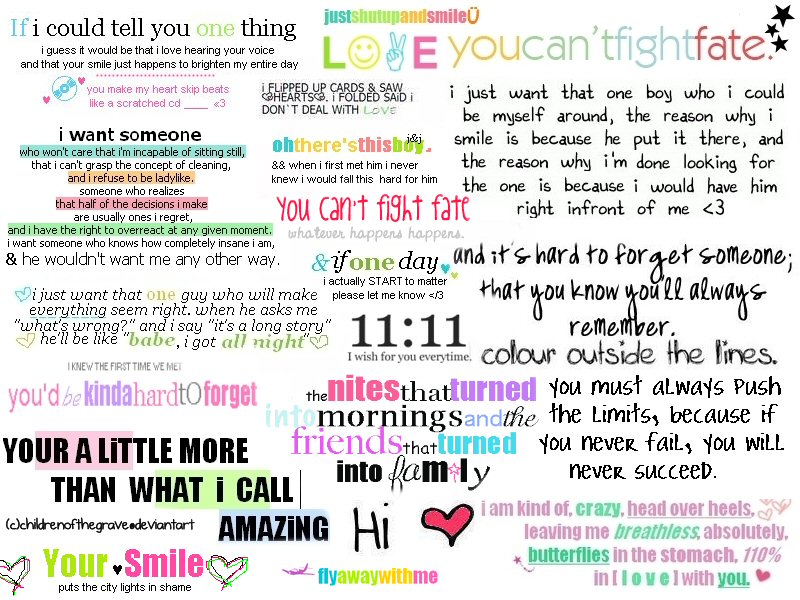 If i could tell you one thing
i guess it would be that i love hearing your voice
and that your smile just happens to brighten my entire day
you make my heart skip beats
like a scratched cd ____ <3
i want someone
who won't care that i'm incapable of sitting still,
that i can't grasp the concept of cleaning,
and i refuse to be ladylike.
someone who realizes
that half of the decisions i make
are usually ones i regret,
and i have the right to overreact at any given moment.
i want someone who knows how completely insane i am,
& he wouldn't want me any other way.
i just want that one guy who will make
everything seem right. when he asks me
"what's wrong?" and i say "it's a long story"
he'll be like "babe, i got all night"
I KNEW THE FIRST TIME WE MET
you'd be kinda hard tO forget
YOUR A LiTTLE MORE
THAN WHAT i CALL
AMAZiNG
(c)childrenofthegrave@deviantart
Your ♥ Smile
puts the city lights in shame
justshutupandsmileÜ
LOVE
i FLiPPED UP CARDS & SAW
HEARTS. i FOLDED SAiD i
DON`T DEAL WiTH LOVE
j&j
ohthere'sthisboy.
&& when i first met him i never
knew i would fall this hard for him
you can't fight fate
whatever happens happens.
& if one day
i actually START to matter
please let me know </3
11:11
I wish for you everytime.
the nites that turned
into mornings and the
friends that turned
into family
Hi
flyawaywithme
youcan'tfightfate.
i just want that one boy who i could
be myself around, the reason why i
smile is because he put it there, and
the reason why i'm done looking for
the one is because i would have him
right infront of me <3
and it's hard to forget someone;
that you know you'll always
remember.
colour outside the lines.
you must always push
the limits, because if
you never fail, you will
never succeed.
i am kind of, crazy, head over heels,
leaving me breathless, absolutely,
butterflies in the stomach, 110%
in [ l o v e ] with you.